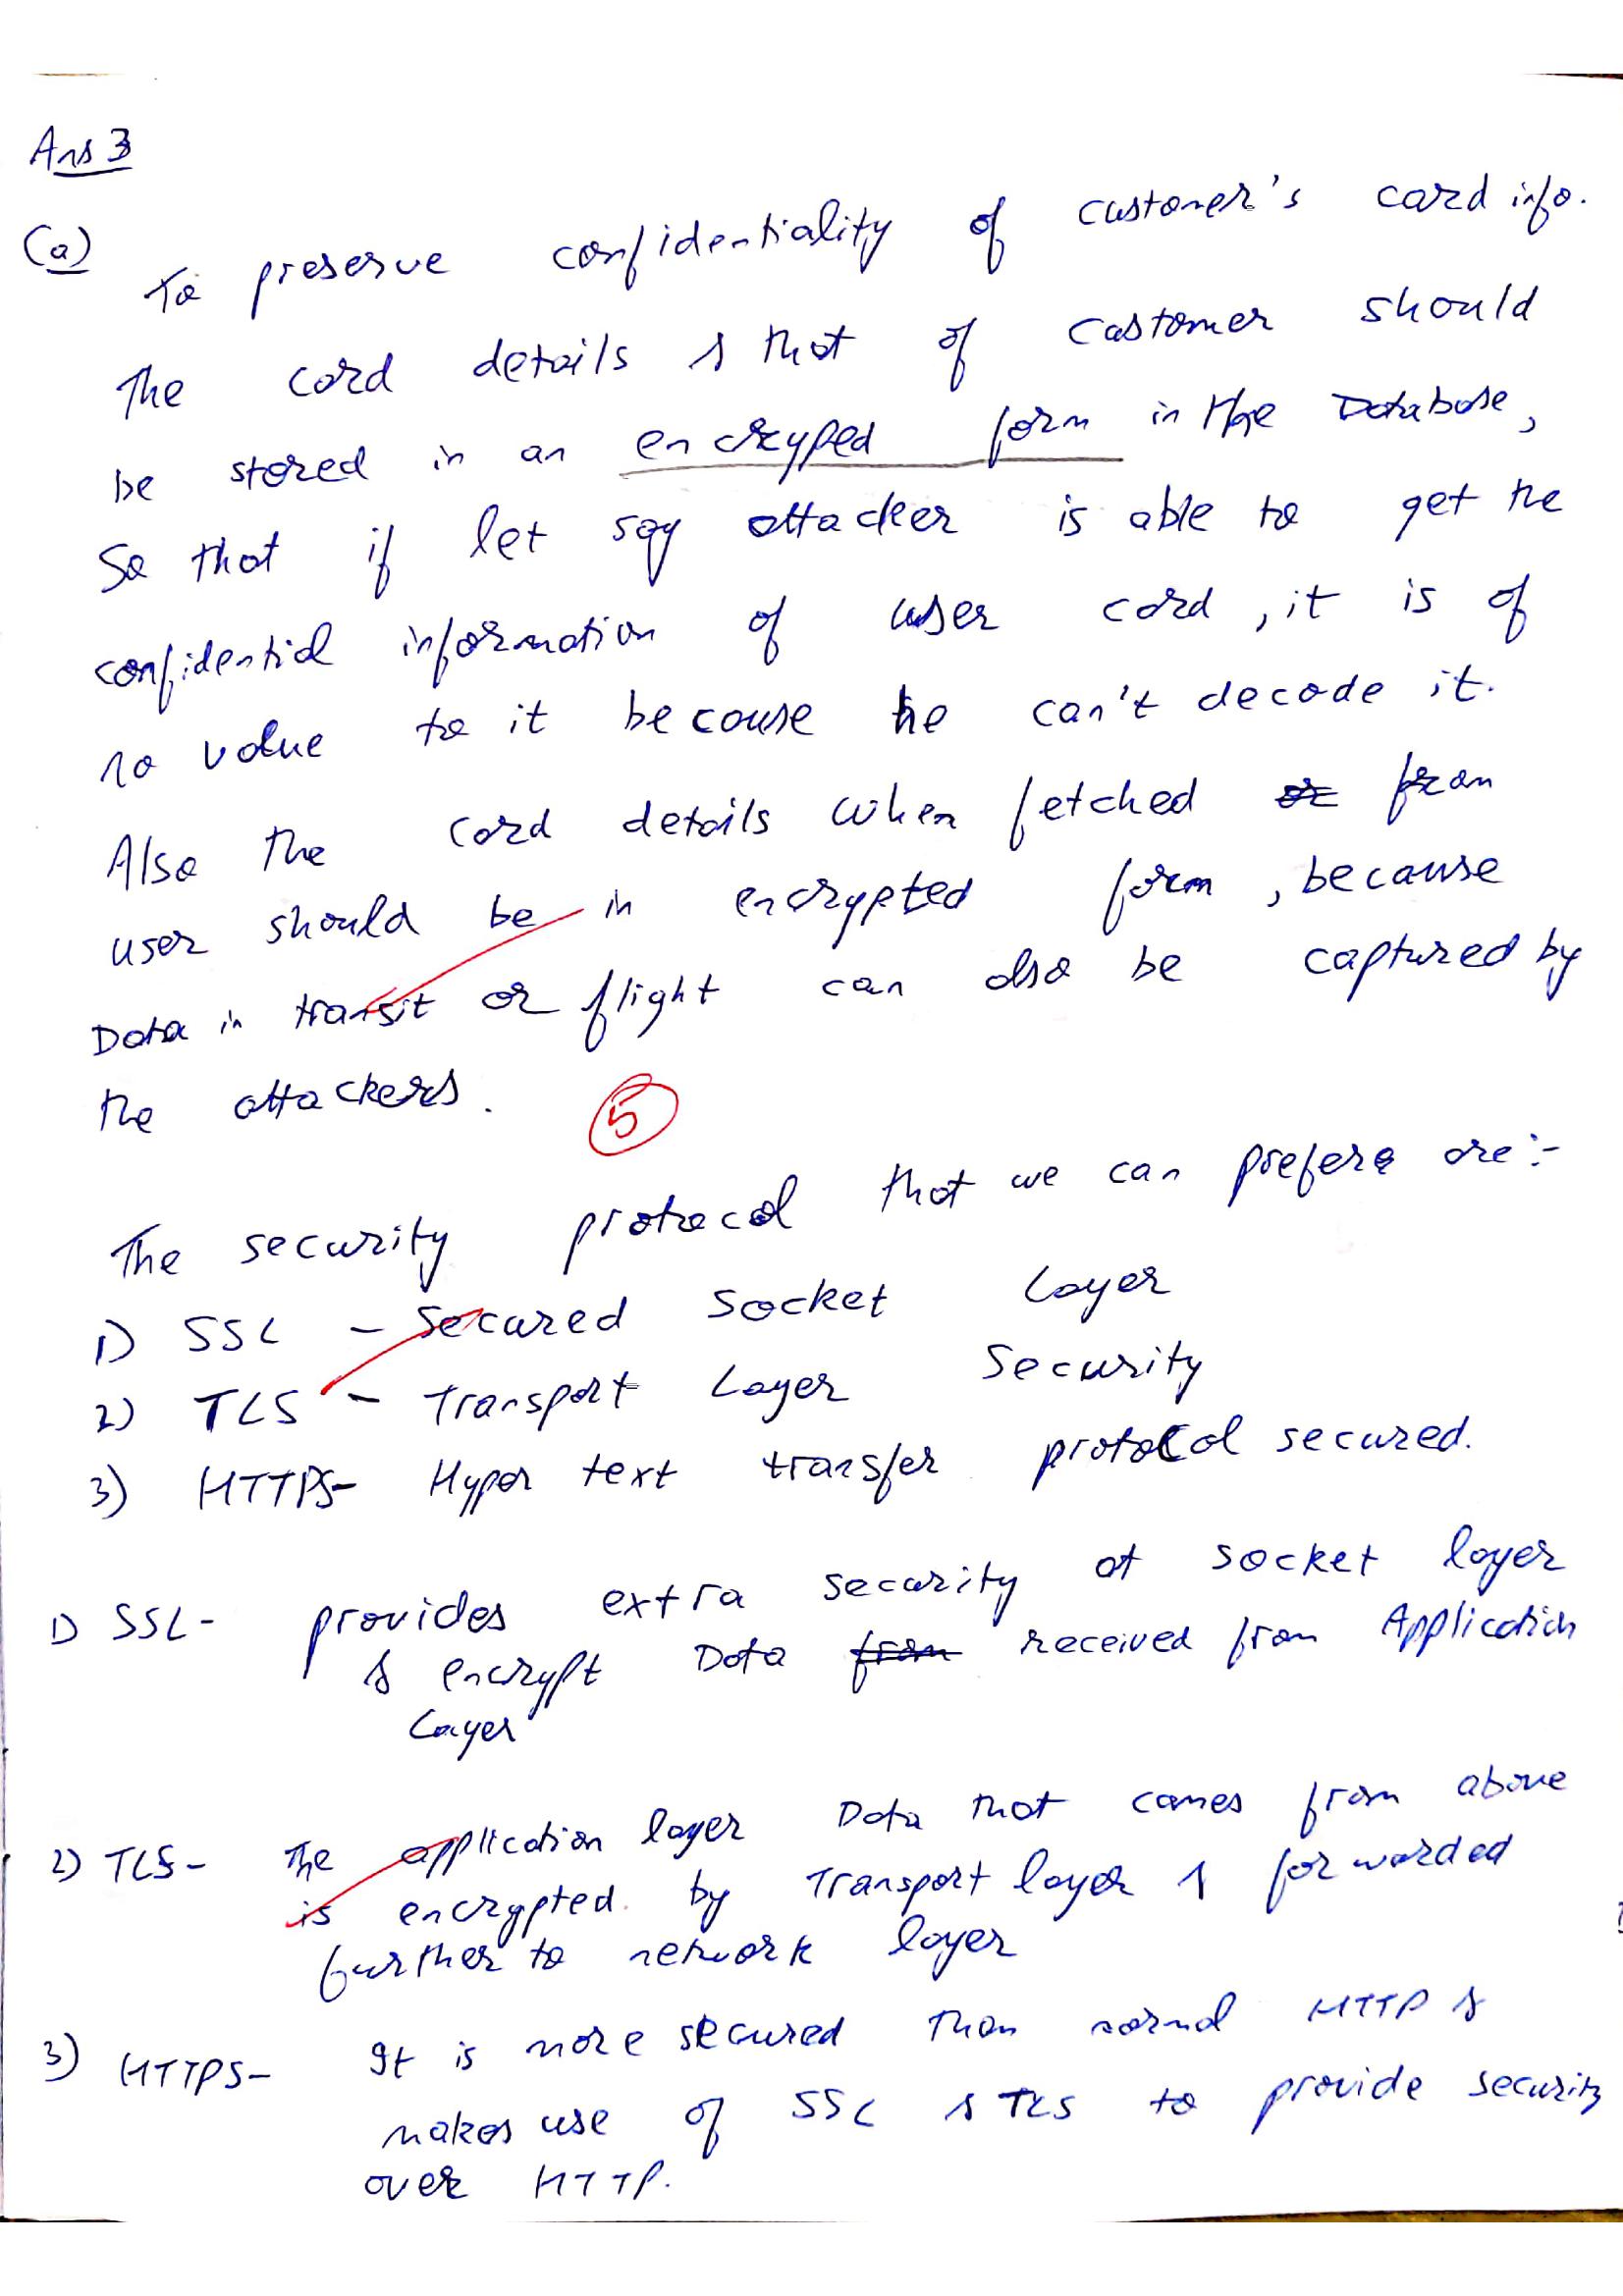 Ans 3
(a)
To preserve confidentiality of customer's card info.
The card details & that of customer should
be stored in an encryped form in the Database,
So that if let say attacker is able to get the
confidential information of user card, it is of
no value to it because he can't decode it.
Also the card details when fetched or from
user should be in encrypted form, because
Data in transit or flight can also be captured by
the attackers.
5
The security protocol that we can prefere are:-
1) SSL - Secured Socket Layer
2) TLS - Transport Layer Security
3) HTTPS- Hyper text transfer protocol secured.
1) SSL- provides extra security at socket layer
& encrypt Data from received from Application
Layer
2) TLS- The application layer Data that comes from above
is encrypted by Transport layer & forwarded
further to network layer
3) HTTPS- It is more secured than normal HTTP &
makes use of SSL & TLS to provide security
over HTTP.